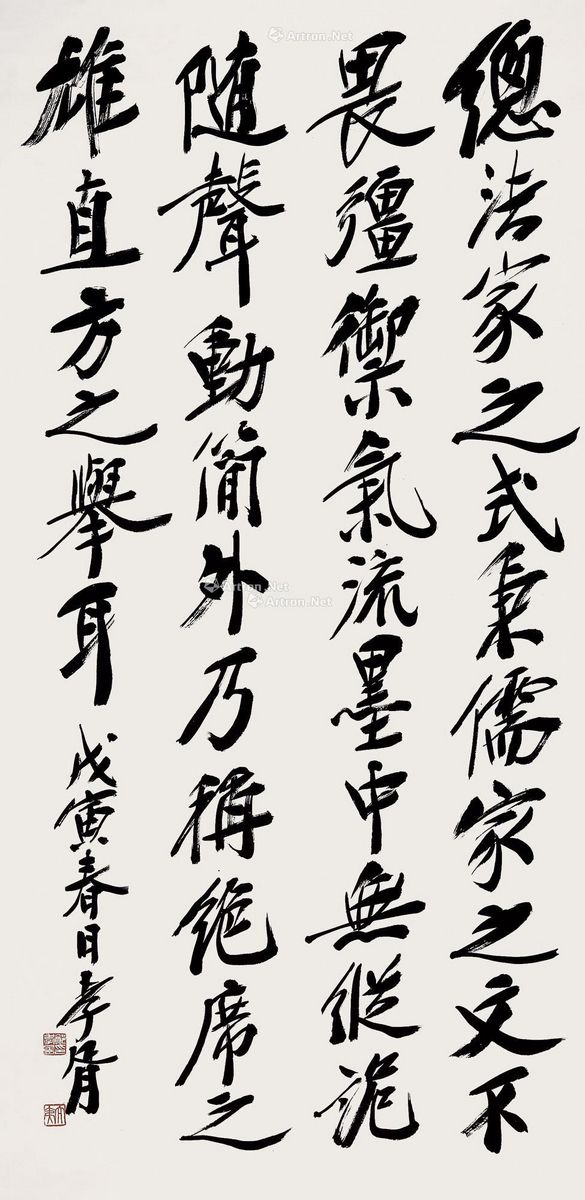 總法家之式秉儒家之文不
畏彊禦氣流墨中無縱詭
随聲動簡外乃稱絶席之
雄直方之舉耳
戊寅春日孝胥
Artron.Net
Artron.Net
Artron.Net